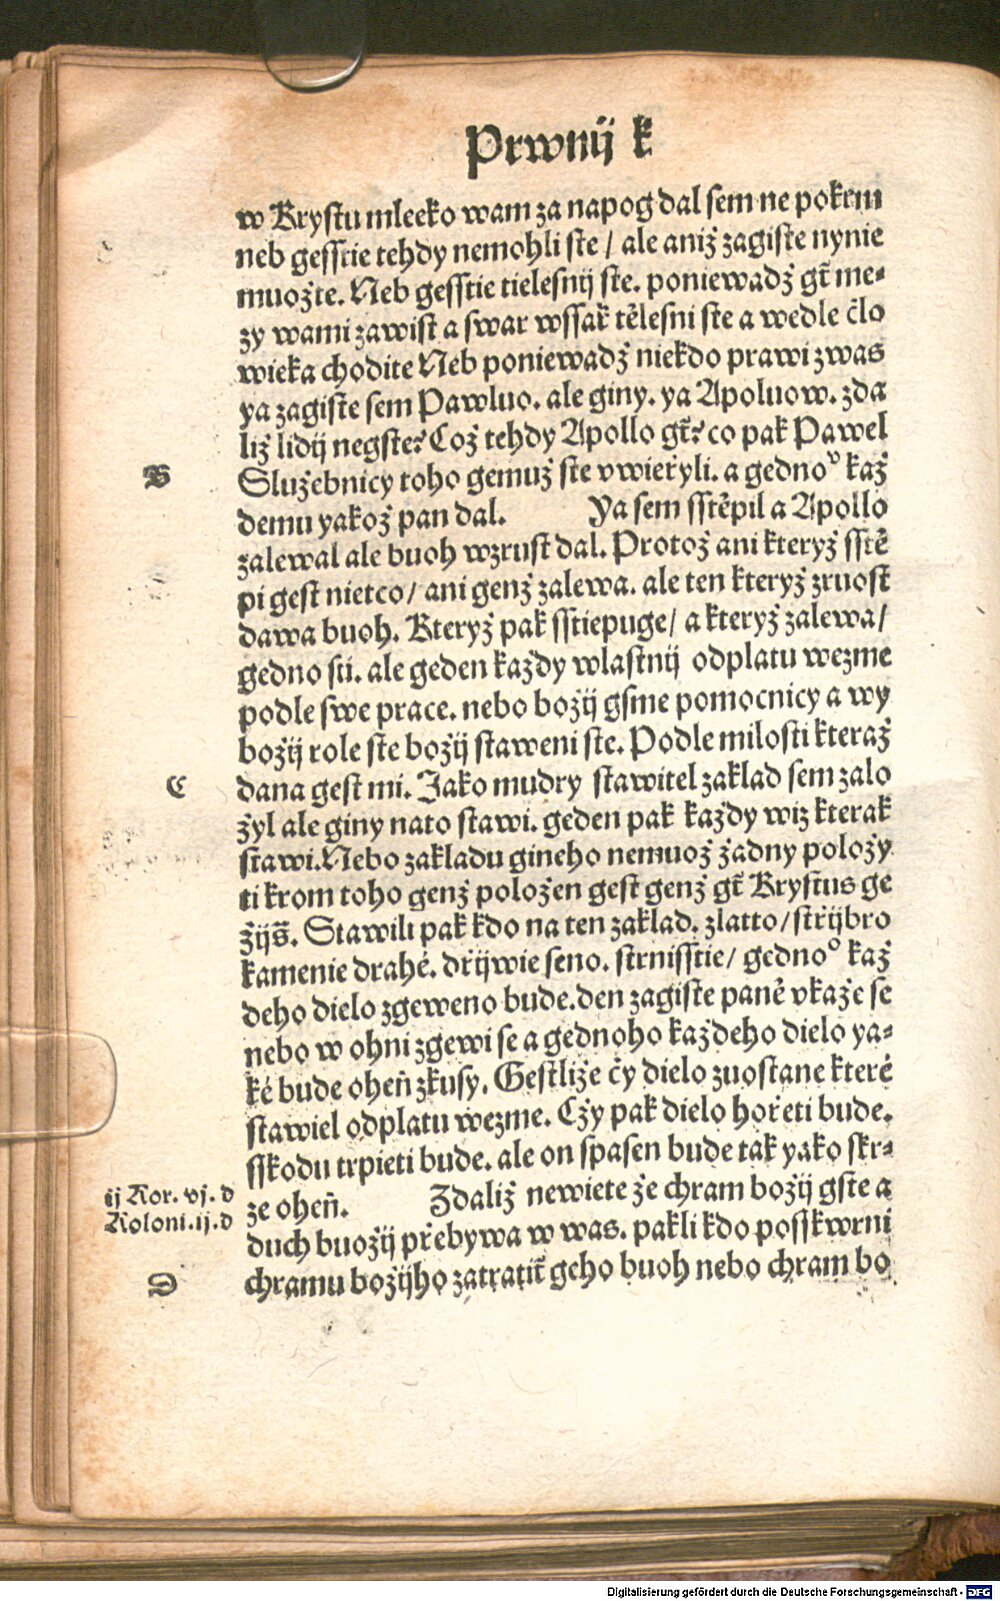 Prwnij k̄
w Krystu mleeko wam za napog dal sem ne pokrm
neb gesstie tehdy nemohli ste / ale aniž zagiste nynie
muožte. Neb gesstie tielesnij ste. poniewadž gt̄ me⸗
zy wami zawist a swar wssak tělesni ste a wedle člo
wieka chodite Neb poniewadž niekdo prawi zwas
ya zagiste sem Pawluo. ale giny. ya Apoluow. zda
liž lidij negste? Což tehdy Apollo gt̄? co pak Pawel
B
Služebnicy toho gemuž ste vwieřyli. a gednoͦ kaž
demu yakož pan dal. Ya sem sstěpil a Apollo
zalewal ale buoh wzrust dal. Protož ani kteryž sstě
pi gest nietco / ani genž zalewa. ale ten kteryž zruost
dawa buoh. Kteryž pak sstiepuge / a kteryž zalewa /
gedno su. ale geden každy wlastnij odplatu wezme
podle swe prace. nebo božij gsme pomocnicy a wy
božij role ste božij staweni ste. Podle milosti kteraž
C
dana gest mi. Jako mudry stawitel zaklad sem zalo
žyl ale giny nato stawi. geden pak každy wiz kterak
stawi. Nebo zakladu gineho nemuož žadny položy
ti krom toho genž položen gest genž gt̄ Krystus ge
žijs̄. Stawili pak kdo na ten zaklad. zlatto / střijbro
kamenie drahé. dřijwie seno. strnisstie / gednoͦ kaž
deho dielo zgeweno bude. den zagiste paně vkaže se
nebo w ohni zgewi se a gednoho každeho dielo ya⸗
ké bude oheň zkusy. Gestliže čy dielo zuostane které
stawiel odplatu wezme. Cžy pak dielo hořeti bude.
sskodu trpieti bude. ale on spasen bude tak yako skr⸗
ij Kor. vj. d
ze oheň. Zdaliž newiete že chram božij gste a
Koloni. ij. d
duch buožij přebywa w was. pakli kdo posskwrni
D
chramu božijho zatratit̄ geho buoh nebo chram bo
Digitalisierung gefördert durch die Deutsche Forschungsgemeinschaft - DFG